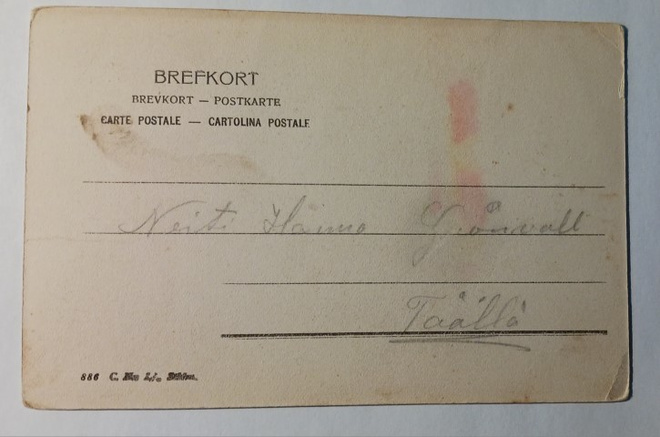 BREFKORT
BREVKORT — POSTKARTE
CARTE POSTALE — CARTOLINA POSTALE
Neiti Hanna Grönvall
Täällä
886 C.